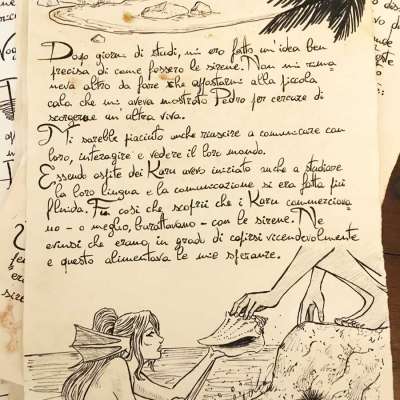 Dopo giorni di studi, mi ero fatto un'idea ben
precisa di come fossero le sirene. Non mi rima-
neva altro da fare che appostarmi alla piccola
cala che mi aveva mostrato Pedro per cercare di
scorgerne un'altra viva.
Mi sarebbe piaciuto anche riuscire a comunicare con
loro, interagire e vedere il loro mondo.
Essendo ospite dei Karu avevo iniziato anche a studiare
la loro lingua e la comunicazione si era fatta più
fluida. Fu così che scoprii che i Karu commerciava-
no - o meglio, barattavano - con le sirene. Ne
evinsi che erano in grado di capirsi vicendevolmente
e questo alimentava le mie speranze.